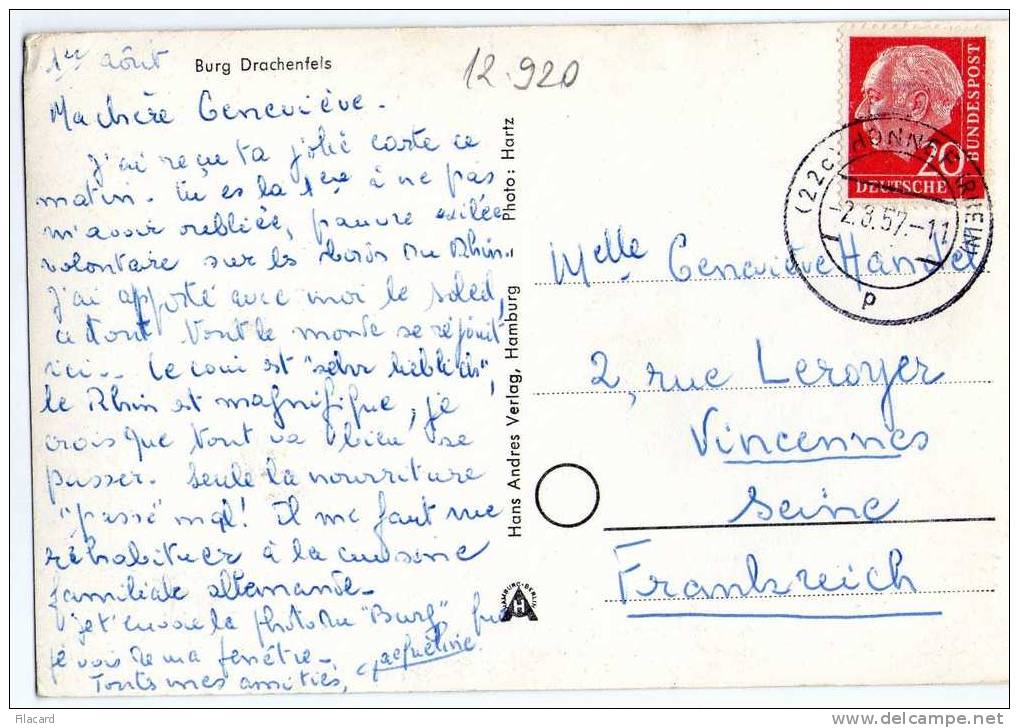 1er août
Burg Drachenfels
12.920
Ma chère Geneviève.
J'ai reçu ta jolie carte ce
matin. Tu es la 1ère à ne pas
m'avoir oubliée, pauvre exilée
volontaire sur les bords du Rhin.
J'ai apporté avec moi le soleil,
ce dont tout le monde se réjouit
ici.. Le coin est "sehr lieblich",
le Rhin est magnifique, je
crois que tout va bien se
passer. Seule la nourriture
"passe" mal! Il me faut me
réhabituer à la cuisine
familiale allemande.
je t'envoie la photo du "Burg" que
je vois de ma fenêtre.
Toutes mes amitiés,
Jacqueline
Hans Andres Verlag, Hamburg Photo: Hartz
HAMBURG-BERLIN
H A
20
DEUTSCHE
BUNDESPOST
(22c) HONNEF RHEIN
-2.8.57.-11
p
Melle Geneviève Handel
2, rue Leroyer
Vincennes
Seine
Frankreich
Filacard
delcampe.net